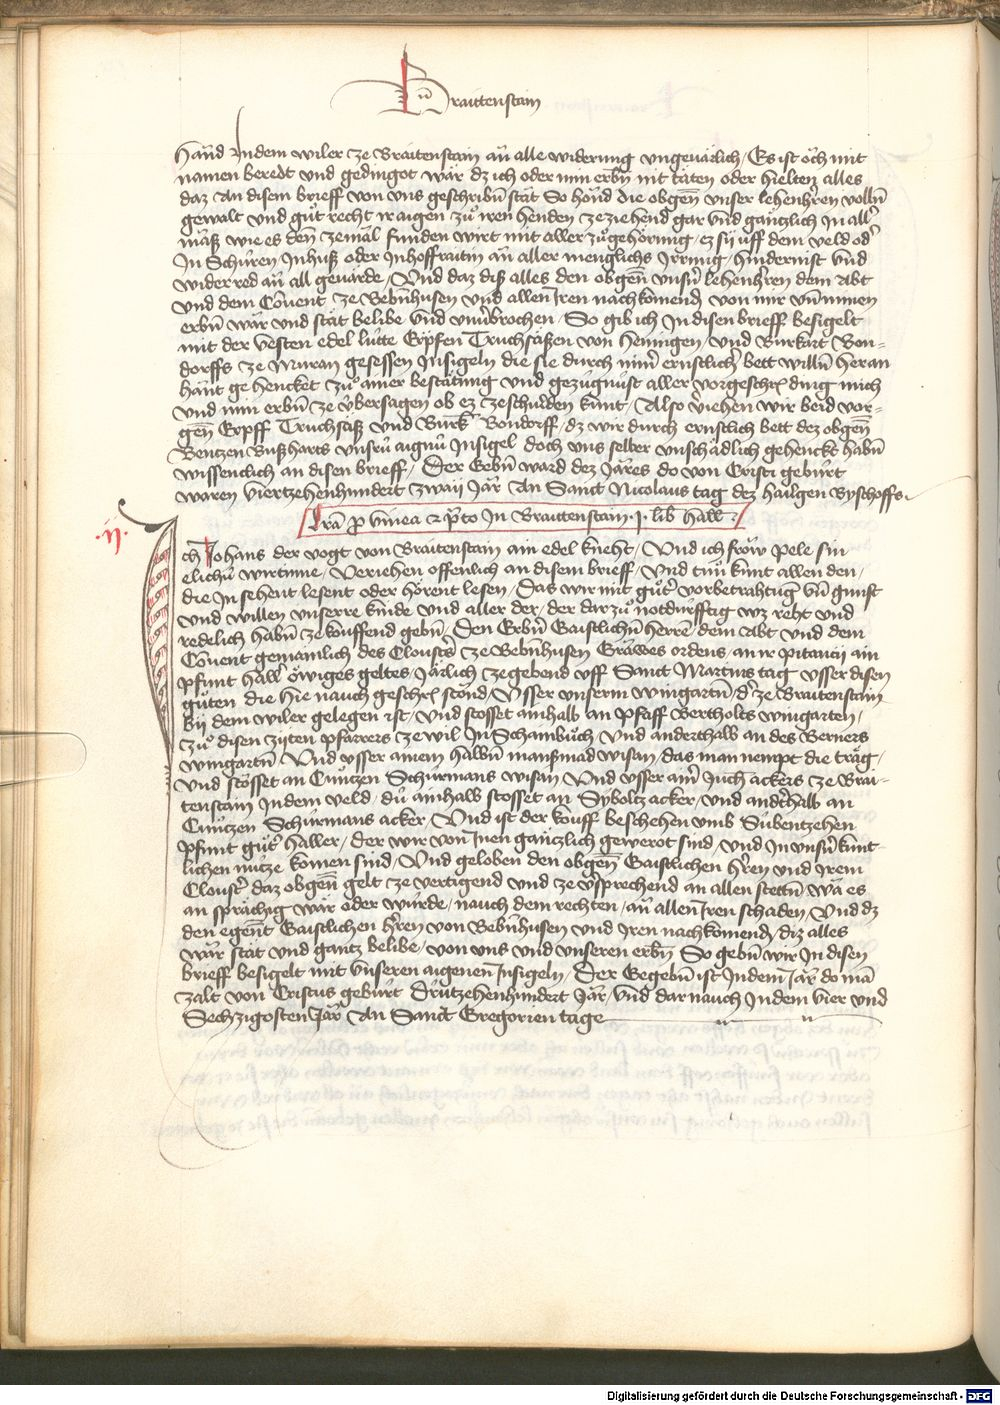 Braittenstain
hand Indem wiler ze Braitenstain an̄ alle widerung ungevarlich / Es ist och mit
namen beredt und gedingot wär dz ich oder min erbn̄ nit täten oder hielten alles
daz An disem brieff von uns geschribn̄ stät So hönd die obgen̄ unser lehenhr̄en volln̄
gewalt und gůt recht ir aigen zů iren henden ze ziehend gar und gäntzlich In all
mäß wie es den̄ zemäl funden wirt mit aller zůgehörung / ez sÿ uff dem veld od
In Schüren Inhuß oder Inhoffraitin an̄ aller menglichs Irrung / hindernist und
widerred an̄ all gevärde / Und daz diß alles den obgen̄ unsn̄ lehenhr̄en dem Abt
und dem Cōvent ze Bebn̄husen und allen Iren nachkomend von mir un̄ minen
erbn̄ wär und stät belibe und unv̄brochen / So gib ich In disen brieff besigelt
mit der vesten edel lütte Erpfen Truchsäßen von Heningen / und Burkart Bon-
dorffs ze Muran gesessen Insigeln die sie durch min̄ ernstlich bett willn̄ heran
hänt gehencket zů ainer bestätnug und gezügnüst aller vorgeschr̄ ding mich
und min erbn̄ ze übersagen ob ez ze schulden kunt / Also v̄iehen wir beid vor-
gen̄ Erpff Truchsäß und Burk̄ Bondorff / dz wir durch ernstlich bett dez obgen̄
Bentzen Bußharts unsrü aignü Insigel doch uns selber unschädlich gehenckt habn̄
wissenclich an disen brieff / Der Gebn̄ ward dez Järes do von Cristi gebürt
waren viertzehenhundert zwaii Jär An Sanct Nicolaus tag dez hailgen Byschoffs
.ij. Lr̄a p̄ vinea et p̄to In Braittenstain .j. lib hall
Ich Johans der vogt von Braitenstain ain edel kneht / Und ich frow Pele sin
elichü wirtinne / Veriehen offenlich an disem brieff / Und tün kunt allen den /
die In sehent lesent oder hörent lesen / Das wir mit gůt vorbetrahtung un̄ gunst
und willen unserre kinde und aller der / der dar zů notdurfftig wz reht und
redelich habn̄ ze kouffend gebn̄ / Den Erbn̄ Gaistlichn̄ herrē dem Abt und dem
Cōvent gemainlich des Closters ze Bebn̄husen Gräwes ordens / an ir Pitancij ain
pfunt hall öwiges geltes / Järlich ze gebend uff Sanct Martins tag usser disen
gůten die hie nauch geschr̄ stönd / Usser unserm wingartn̄ / d ze Braitenstain
bÿ dem wiler gelegen ist / Und stosset ainhalb an pfaff Bertholts wingarten /
zů disen zijten pfarrers ze wil In Schainbůch Und anderthalb an des Berners
wingartn̄ Und usser ainem halbn̄ manßmad wisan / das man nempt die träg /
und stosset an Cüntzen Schürmans wisan Und usser ain̄ Juch ackers ze Brai-
tenstain Indem veld / dü ainhalb stosset an Syboltz acker / und andthalb an
Cüntzen Schürmans acker / Und ist der kouff beschehen umb Sübentzehen
pfunt gůt haller / der wir von Inen gäntzlich gewerot sind / und In unsn̄ kunt-
lichen nütze komen sind / Und geloben den obgen̄ Gaistlichen hr̄en und Irem
Clouster daz obgen̄ gelt ze vertigend und ze v̄sprechend an allen stettn̄ wä es
an sprächig wär oder würde / nauch dem rechten / an̄ allen Iren schaden / Und dz
den egent Gaistlichen hr̄en von Bebn̄husen und Iren nachkomend / diz alles
wär stät und gantz belibe / von uns und unseren erbn̄ So gebn̄ wir In disen
brieff besigelt mit unseren aigenen Insigeln / Der Gegebn̄ ist Indem Jär do mā
zalt von Cristus gebürt Drützehenhundert Jär / und dar nauch Indem vier und
Sechzigosten Jär An Sanct Gregorien tage
Digitalisierung gefördert durch die Deutsche Forschungsgemeinschaft - DFG